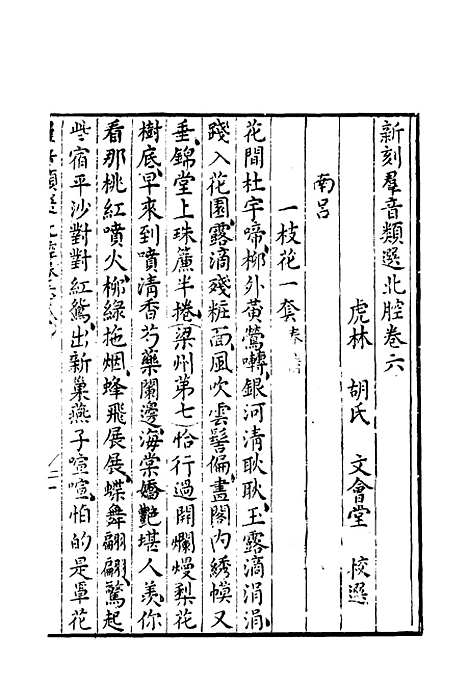 新刻羣音類選北腔卷六
虎林 胡氏 文會堂 校選
南呂
一枝花一套春
花間杜宇啼柳外黃鶯囀銀河清耿耿玉露滴涓涓
踐入花園露滴殘粧面風吹雲髻偏畫閣內綉幙又
垂錦堂上珠簾半捲梁州第七恰行過開爛熳梨花
樹底早來到噴清香芍藥闌邊海棠嬌艷堪人羨你
看那桃紅噴火柳綠拖烟蜂飛展展蝶舞翩翩驚起
些宿平沙對對紅鴛出新巢燕子喧喧怕的是單花